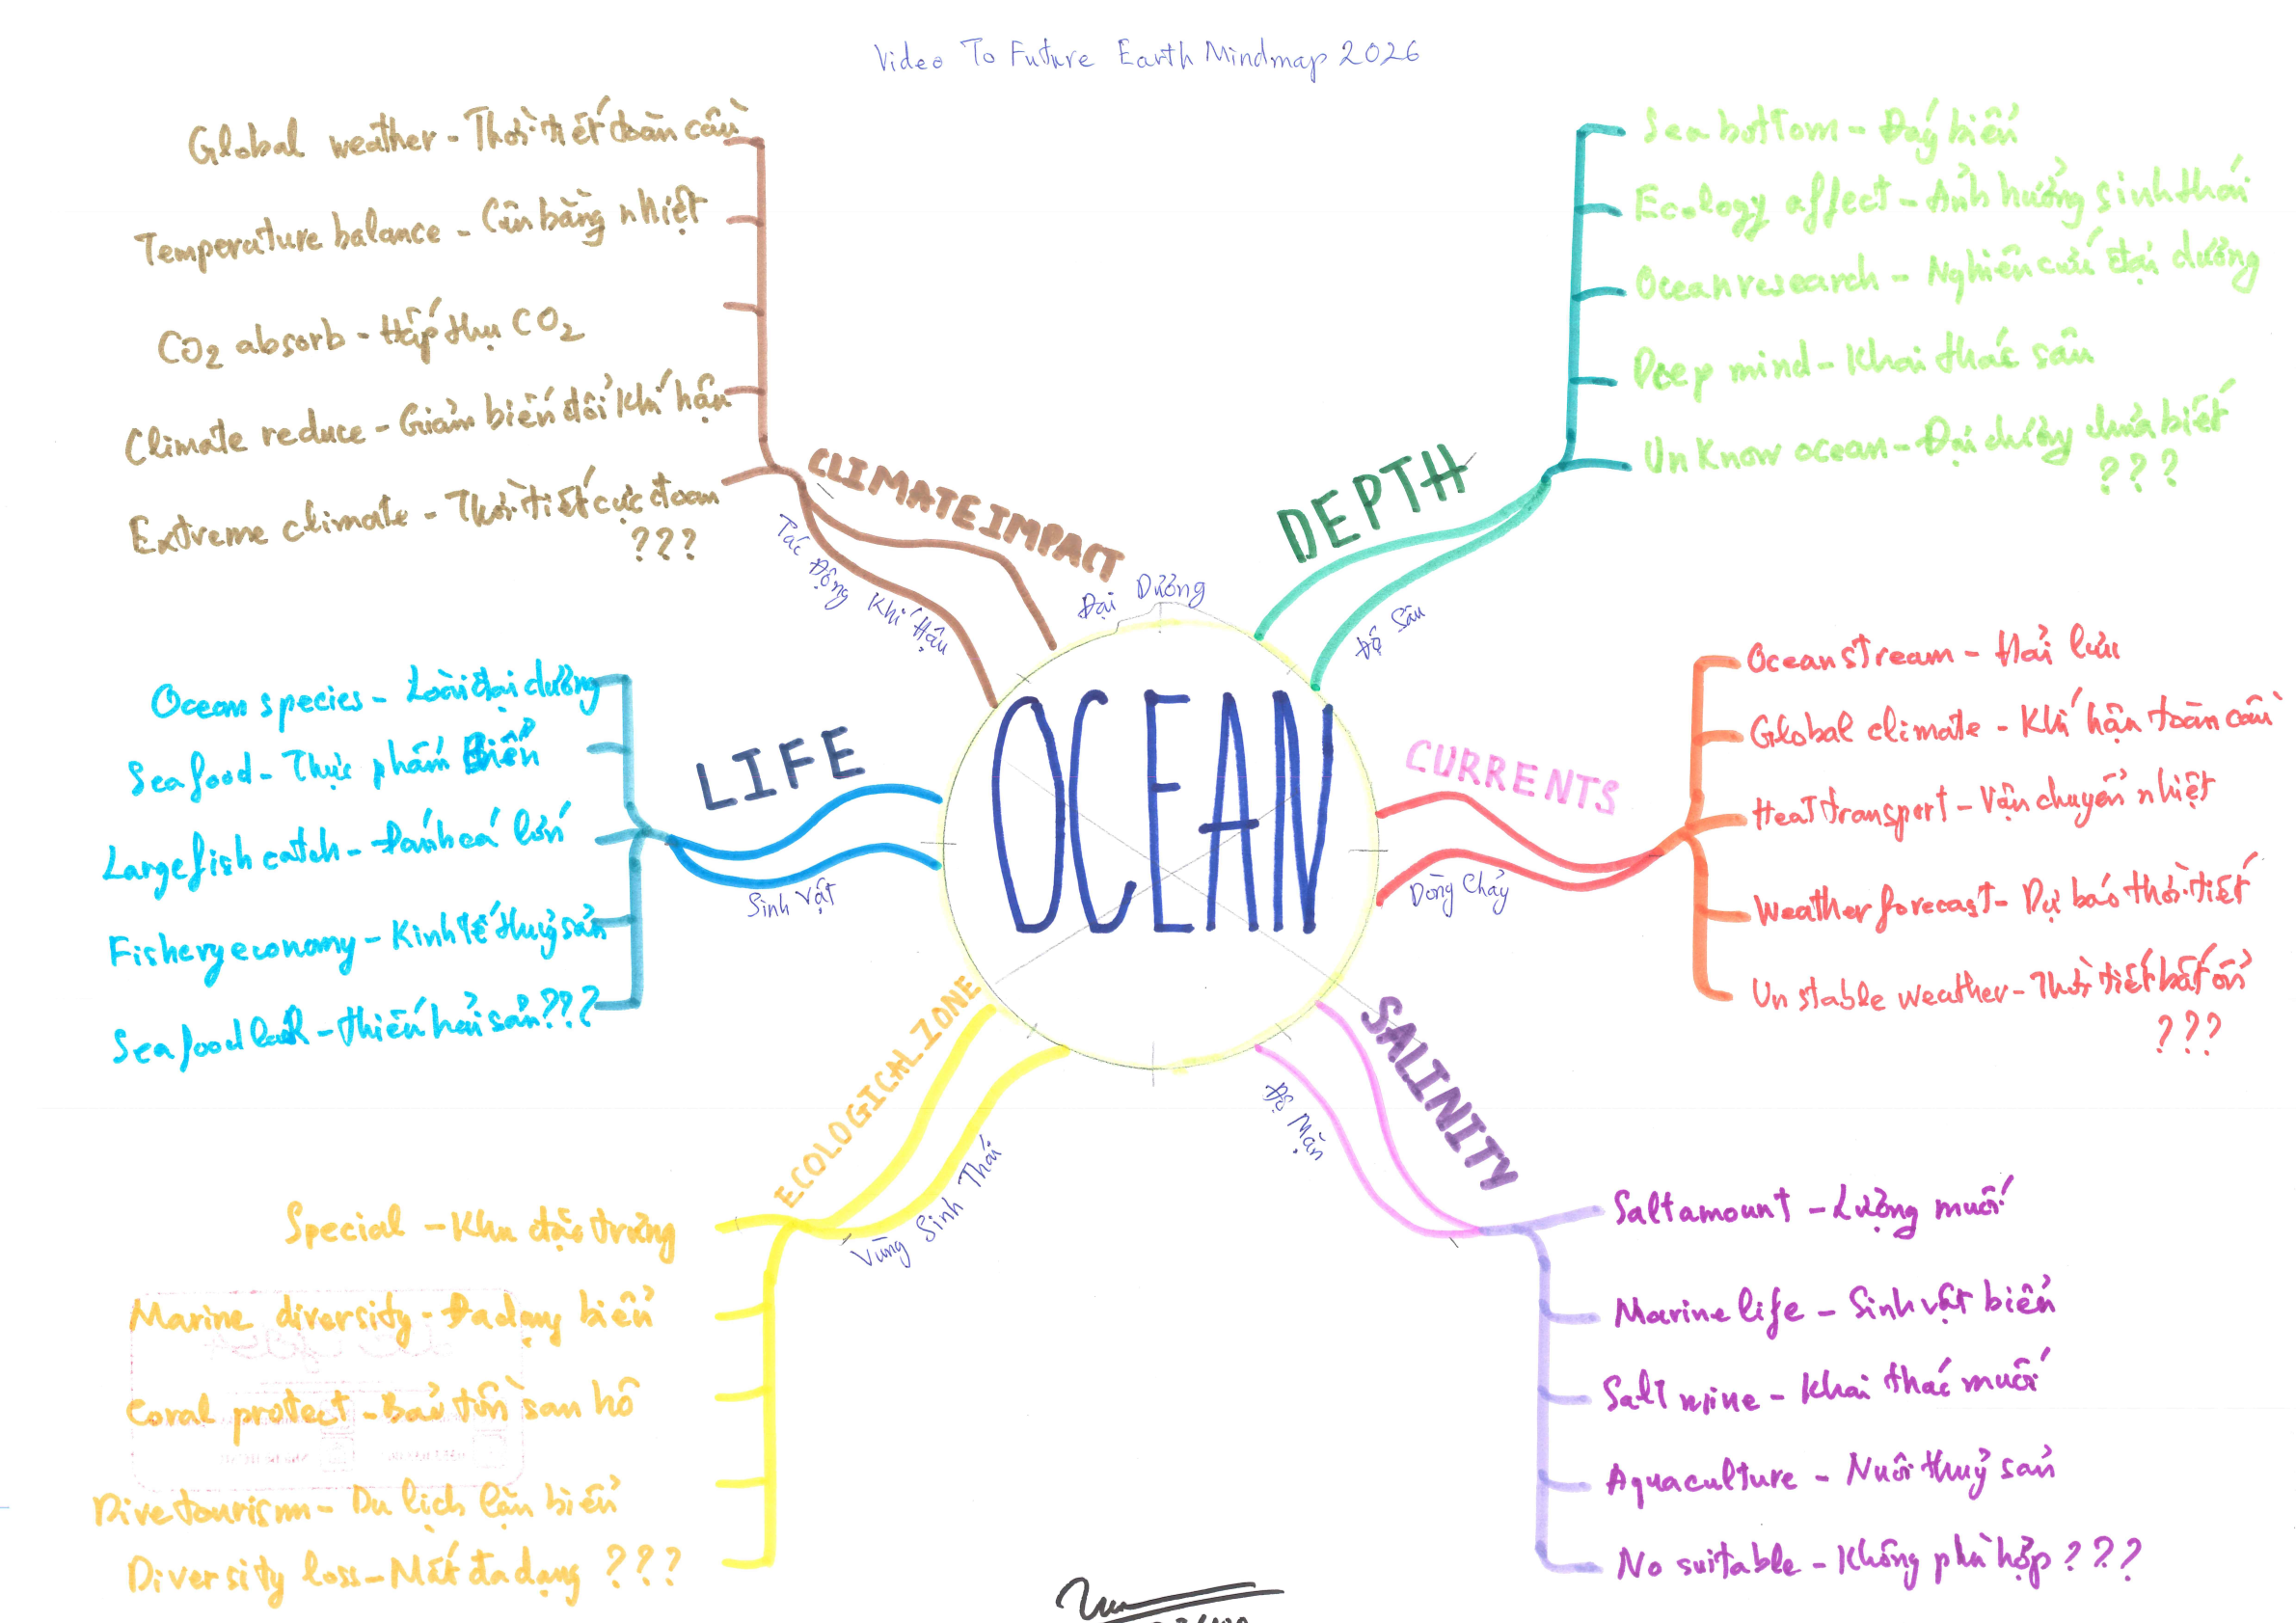 Video To Future Earth Mindmap 2026
OCEAN
Đại Dương
DEPTH
Độ Sâu
Sea bottom - Đáy biển
Ecology affect - Ảnh hưởng sinh thái
Ocean research - Nghiên cứu đại dương
Deep mind - Khai thác sâu
Unknow ocean - Đại dương chưa biết
???
CURRENTS
Dòng Chảy
Ocean stream - Hải lưu
Global climate - Khí hậu toàn cầu
Heat transport - Vận chuyển nhiệt
Weather forecast - Dự báo thời tiết
Unstable weather - Thời tiết bất ổn
???
SALINITY
Độ Mặn
Salt amount - Lượng muối
Marine life - Sinh vật biển
Salt mine - Khai thác muối
Aquaculture - Nuôi thuỷ sản
No suitable - Không phù hợp ???
ECOLOGICAL ZONE
Vùng Sinh Thái
Special - Khu đặc trưng
Marine diversity - Đa dạng biển
Coral protect - Bảo tồn san hô
Dive tourism - Du lịch lặn biển
Diversity loss - Mất đa dạng ???
LIFE
Sinh Vật
Ocean species - Loài đại dương
Sea food - Thực phẩm biển
Large fish catch - Đánh cá lớn
Fishery economy - Kinh tế thuỷ sản
Sea food lack - thiếu hải sản ???
CLIMATE IMPACT
Tác Động Khí Hậu
Global weather - Thời tiết toàn cầu
Temperature balance - Cân bằng nhiệt
CO2 absorb - Hấp thụ CO2
Climate reduce - Giảm biến đổi khí hậu
Extreme climate - Thời tiết cực đoan
???